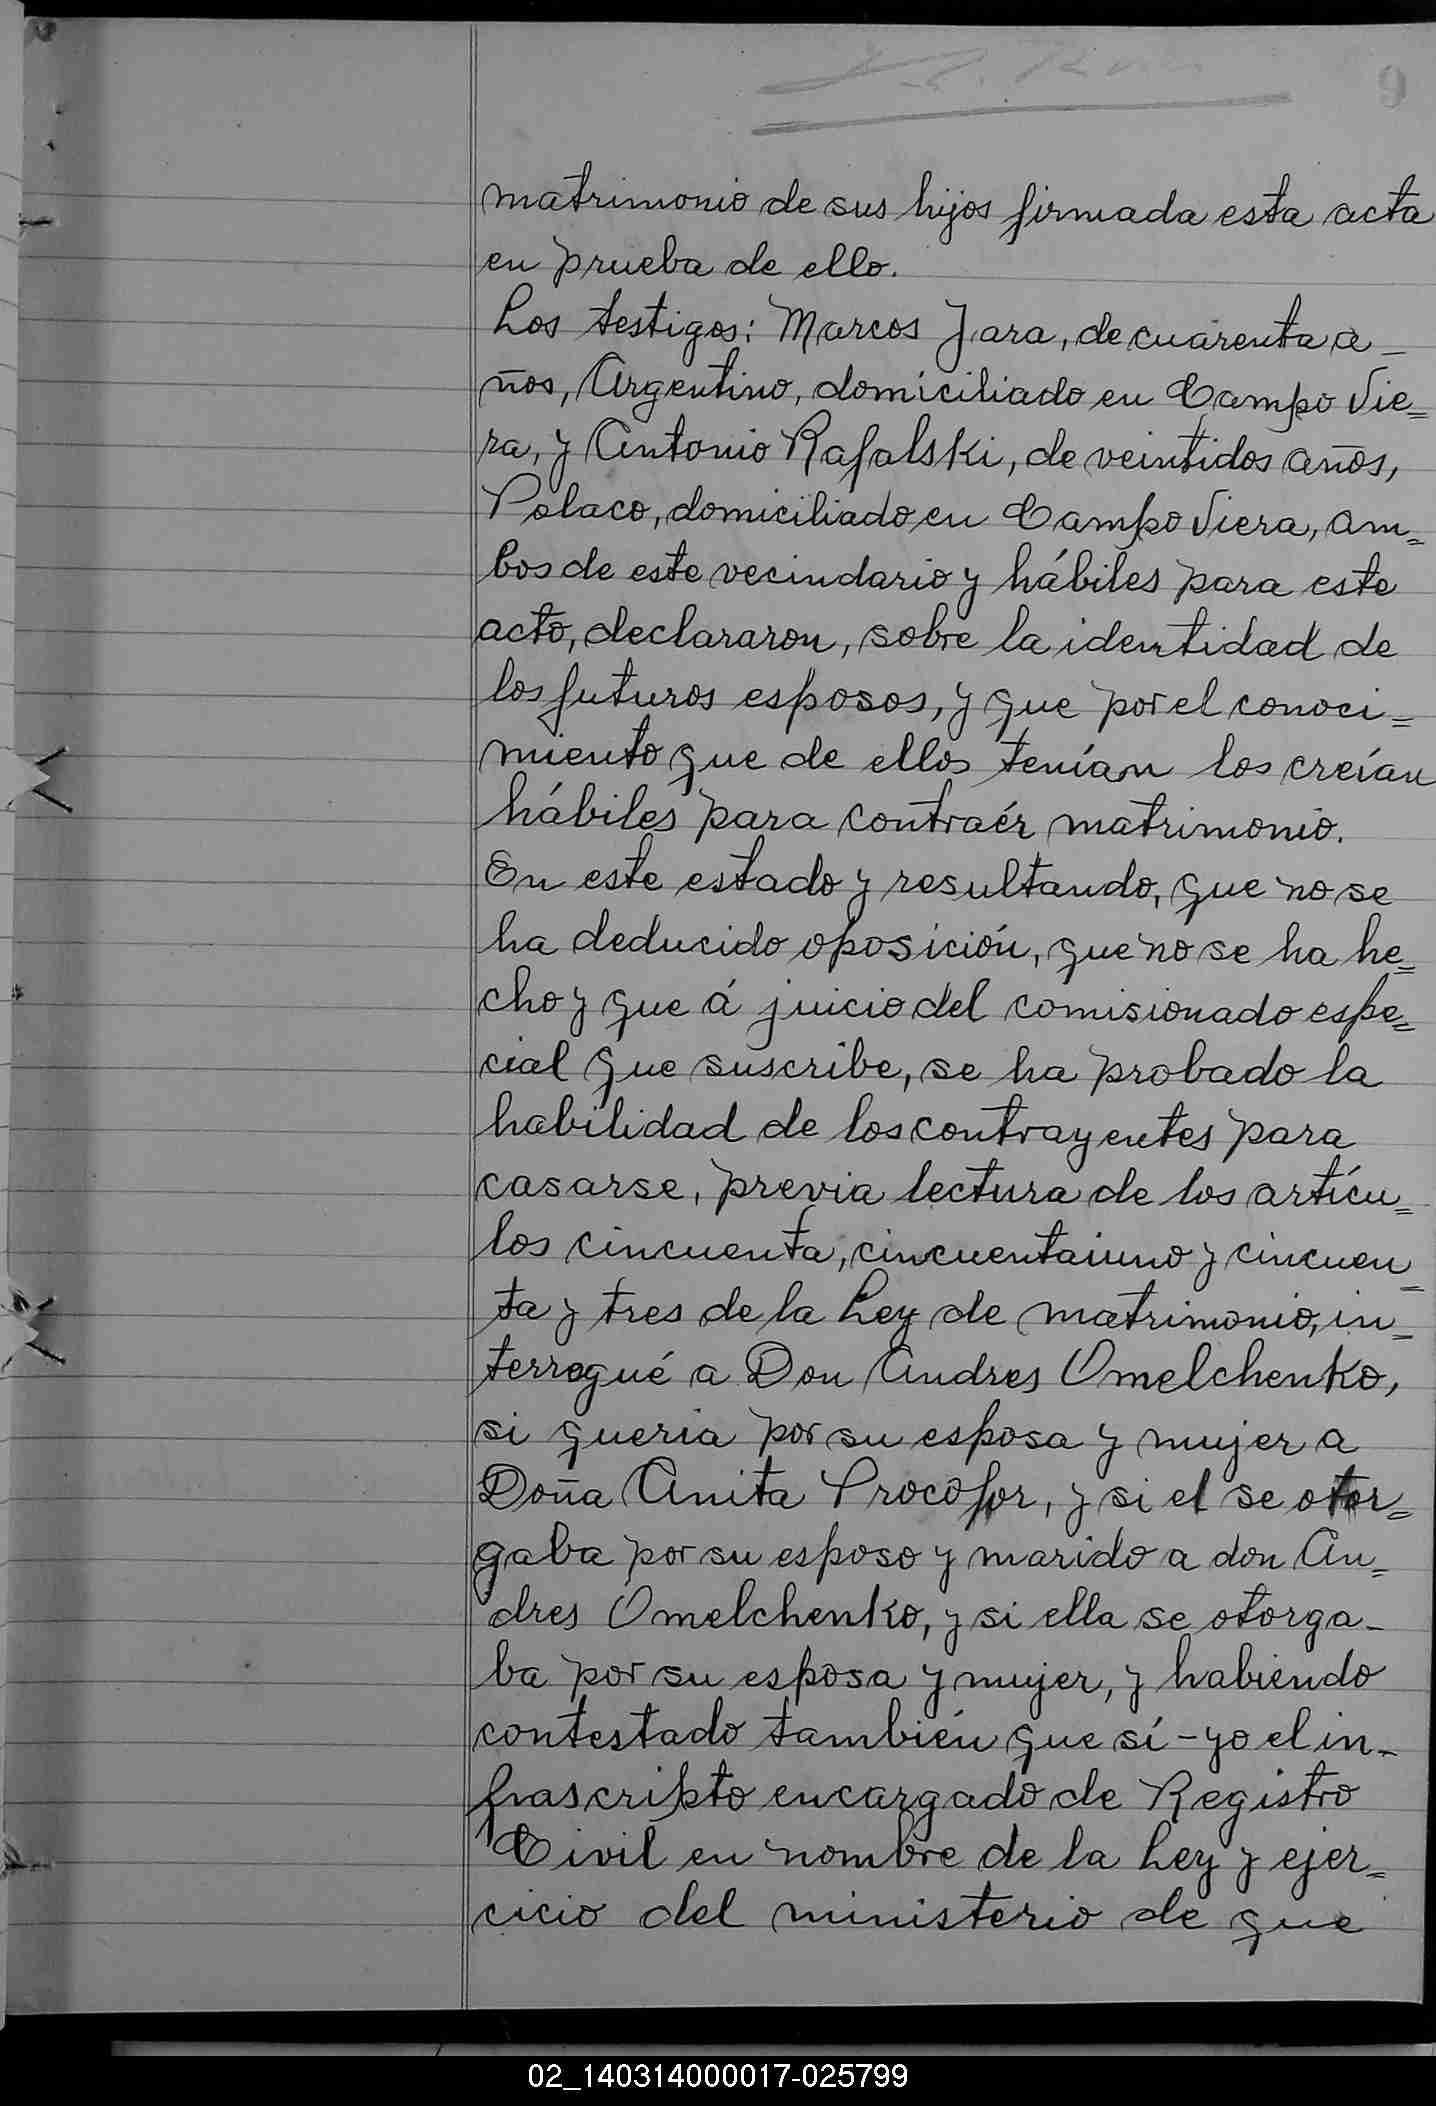 9
matrimonio de sus hijos firmada esta acta
en prueba de ello.
Los testigos: Marcos Jara, de cuarenta a-
ños, Argentino, domiciliado en Campo Vie=
ra, y Antonio Rafalski, de veintidos años,
Polaco, domiciliado en Campo Viera, am=
bos de este vecindario y hábiles para este
acto, declararon, sobre la identidad de
los futuros esposos, y que por el conoci=
miento que de ellos tenían los creían
hábiles para contraér matrimonio.
En este estado y resultando, que no se
ha deducido oposición, que no se ha he=
cho y que á juicio del comisionado espe=
cial que suscribe, se ha probado la
habilidad de los contrayentes para
casarse, previa lectura de los artícu=
los cincuenta, cincuentaiuno y cincuen=
ta y tres de la Ley de matrimonio, in=
terrogué a Don Andres Omelchenko,
si queria por su esposa y mujer a
Doña Anita Procofor, y si el se otor=
gaba por su esposo y marido a don An=
dres Omelchenko, y si ella se otorga-
ba por su esposa y mujer, y habiendo
contestado también que sí - yo el in-
frascripto encargado de Registro
Civil en nombre de la Ley y ejer=
cicio del ministerio de que
02_140314000017-025799